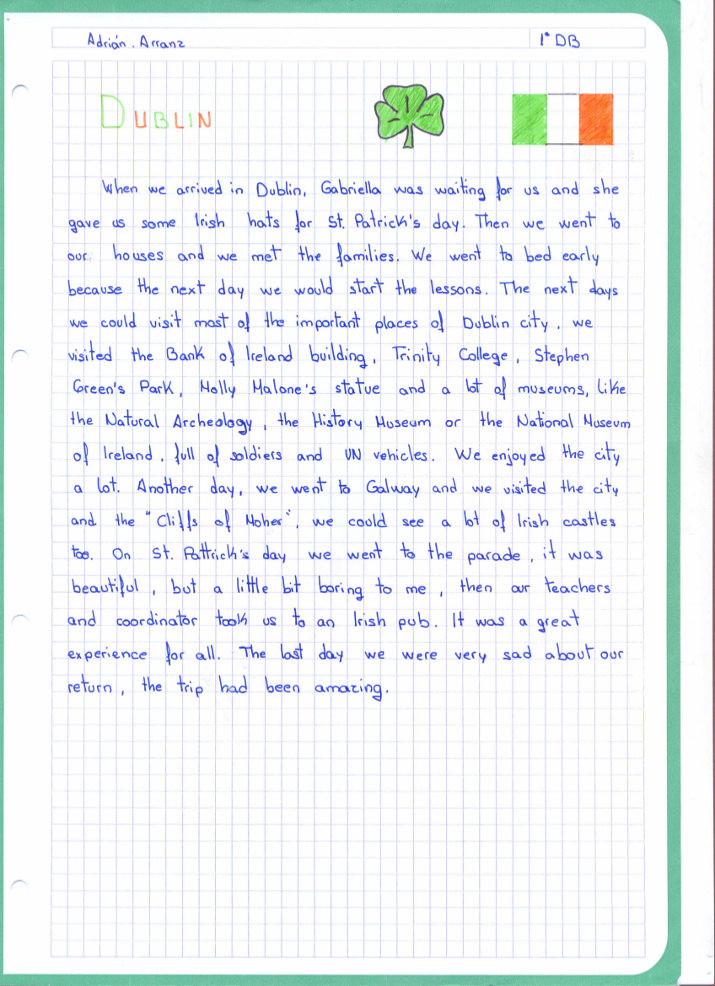 Adrián. Arranz 1º DB
DUBLIN
When we arrived in Dublin, Gabriella was waiting for us and she
gave us some Irish hats for St. Patrick's day. Then we went to
our houses and we met the families. We went to bed early
because the next day we would start the lessons. The next days
we could visit most of the important places of Dublin city, we
visited the Bank of Ireland building, Trinity College, Stephen
Green's Park, Molly Malone's statue and a lot of museums, like
the Natural Archeology, the History Museum or the National Museum
of Ireland, full of soldiers and UN vehicles. We enjoyed the city
a lot. Another day, we went to Galway and we visited the city
and the "Cliffs of Moher", we could see a lot of Irish castles
too. On St. Pattrick's day we went to the parade, it was
beautiful, but a little bit boring to me, then our teachers
and coordinator took us to an Irish pub. It was a great
experience for all. The last day we were very sad about our
return, the trip had been amazing.